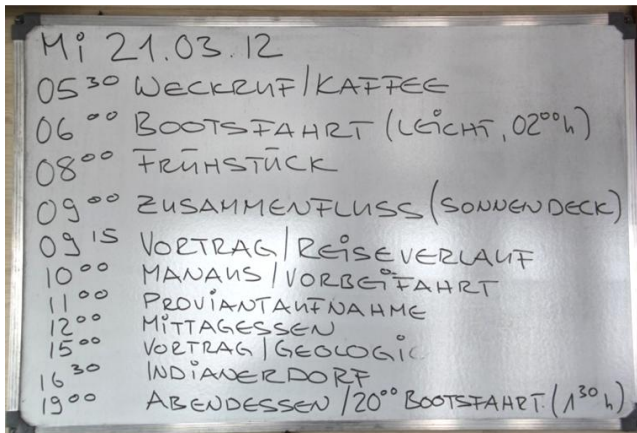 Mi 21.03.12
05³⁰ WECKRUF/KAFFEE
06⁰⁰ BOOTSFAHRT (LEiCHT, 02⁰⁰h)
08⁰⁰ FRÜHSTÜCK
09⁰⁰ ZUSAMMENFLUSS (SONNENDECK)
09¹⁵ VORTRAG/REiSEVERLAUF
10⁰⁰ MANAUS/VORBEiFAHRT
11⁰⁰ PROViANTAUFNAHME
12⁰⁰ MiTTAGESSEN
15⁰⁰ VORTRAG/GEOLOGiE
16³⁰ iNDiANERDORF
19⁰⁰ ABENDESSEN/20⁰⁰ BOOTSFAHRT (1³⁰h)